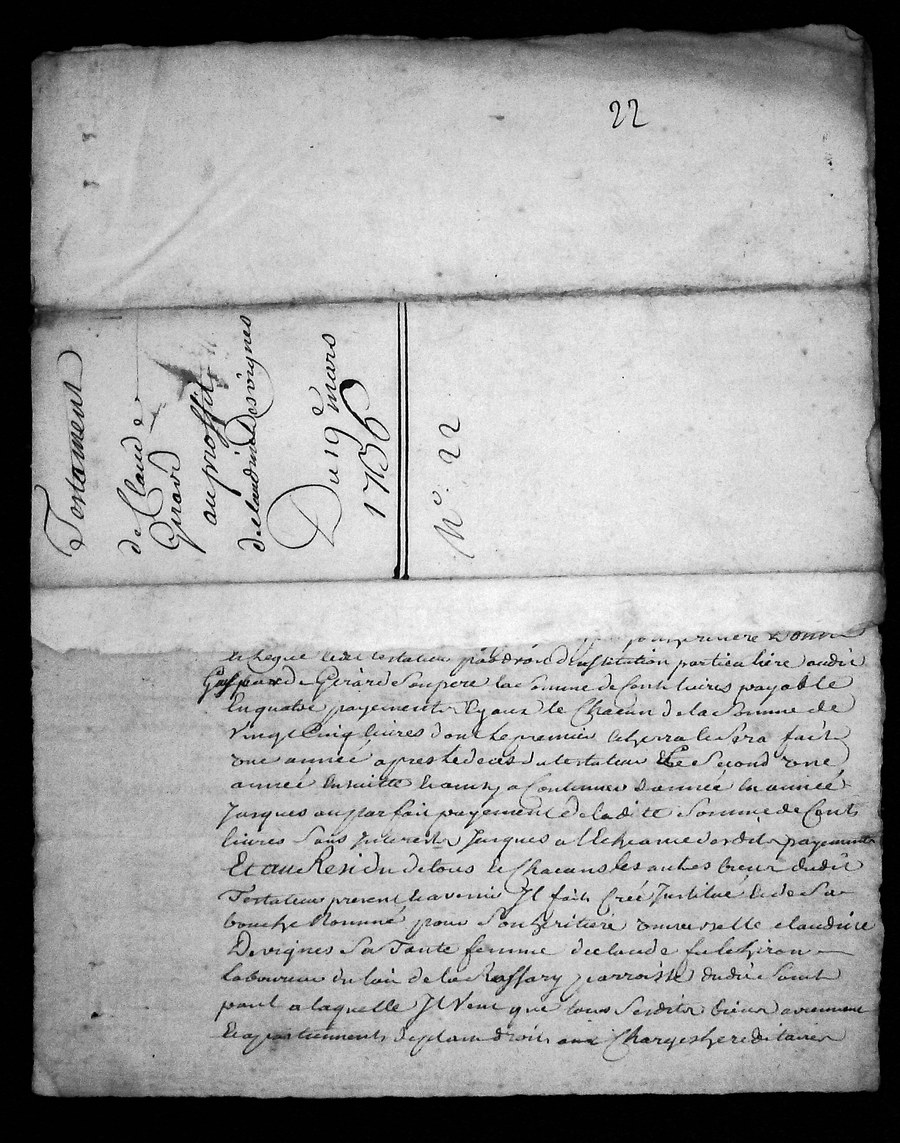 22
Testament
de Claude
Girard
au proffit
de claudine Desvignes
Du 19e mars
1736
No. 22
premiere
Leque ledit testateur par droit d'institution particuliere audit
Gaspard Girard Son pere la Somme de Cent livres payable
En quatre payements Egaux le Chacun de la Somme de
vingt Cinq livres dont le premier Echerra le Sera fait
une année apres le deces du testateur Le Second une
année Ensuitte Et ainsy a Continuer d'année En année
Jusques au parfait payement de ladite Somme de Cent
livres Sans Interests Jusques a l'Echeance desdits payements
Et au Residu de tous Et Chacuns les autres biens dudit
Testateur present Et avenir Il fait Créé Institue Et de Sa
bouche Nommé pour Son heritiere universelle claudine
Devignes Sa Tante femme de claude fulchiron
Laboureur du lieu de la parroisse dudit Saint
paul a laquelle Il Veut que tous Sesdits biens aviennent
Et apartiennent de plain droit aux Charges hereditaires